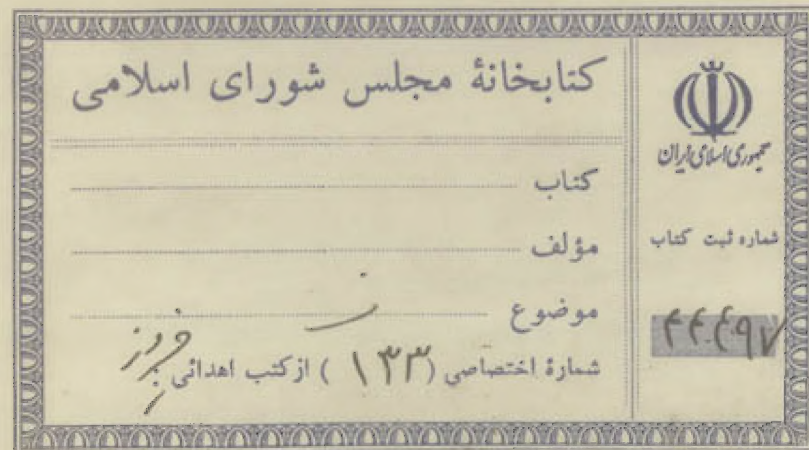 کتابخانهٔ مجلس شورای اسلامی
کتاب
مؤلف
موضوع
شمارهٔ اختصاصی (۱۳۳) از کتب اهدائی
جمهوری اسلامی ایران
شماره ثبت کتاب